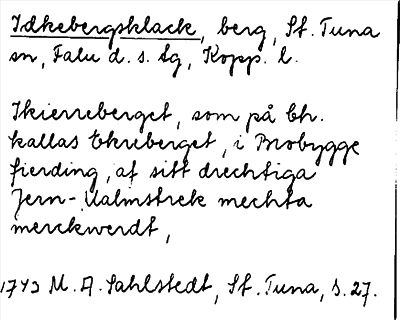 Idkebergsklack, berg, St. Tuna
sn, Falu d. s. lg, Kopp. l.
Ikierreberget, som på Ch.
kallas Ekreberget, i Brobygge
fierding, af sitt drechtiga
Jern-Malmstrek mechta
merckwerdt,
1743 M. A. Sahlstedt, St. Tuna, s. 27.